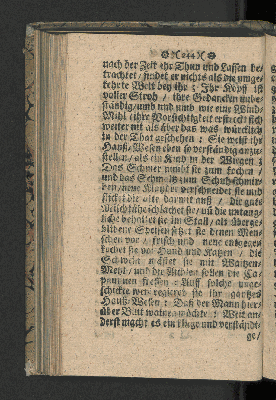 )( 244 )(
nach der Zeit ihr Thun und Lassen be-
trachtet / findet er nichts als die umge-
kehrte Welt bey ihr; Ihr Kopff ist
voller Stroh / ihre Gedancken unbe-
ständig / umb und umb wie eine Wind-
Mühl / ihre Vorsichtigkeit erstreckt sich
weiter nit als über das was würcklich
in der That geschehen; Sie weist ihr
Hauß-Wesen eben so verständig anzu-
stellen / als ein Kind in der Wiegen;
Das Schmer nimbt sie zum kochen /
und das Schmaltz zum Schuh-schmir-
ken / neue Kleyder verschneidet sie und
flicket die alte darmit auß / die gute
Milchkühe schlachtet sie /
behaltet sie im Stall / alte
Speisen setzt sie denen Men-
schen vor / frisch und neue entgegen
kochet sie vor Hund und Katzen / die
Schwein mästet sie mit Waitzen-
Meel / und die Kleiben sollen die Ca-
paunen fressen: Auff solche unge-
schickte weiß regieret sie ihr gantzes
Hauß-Wesen; Daß der Mann hier-
über Blut wainen möchte: Weit an-
derst macht es ein kluge und verständi-
ge /